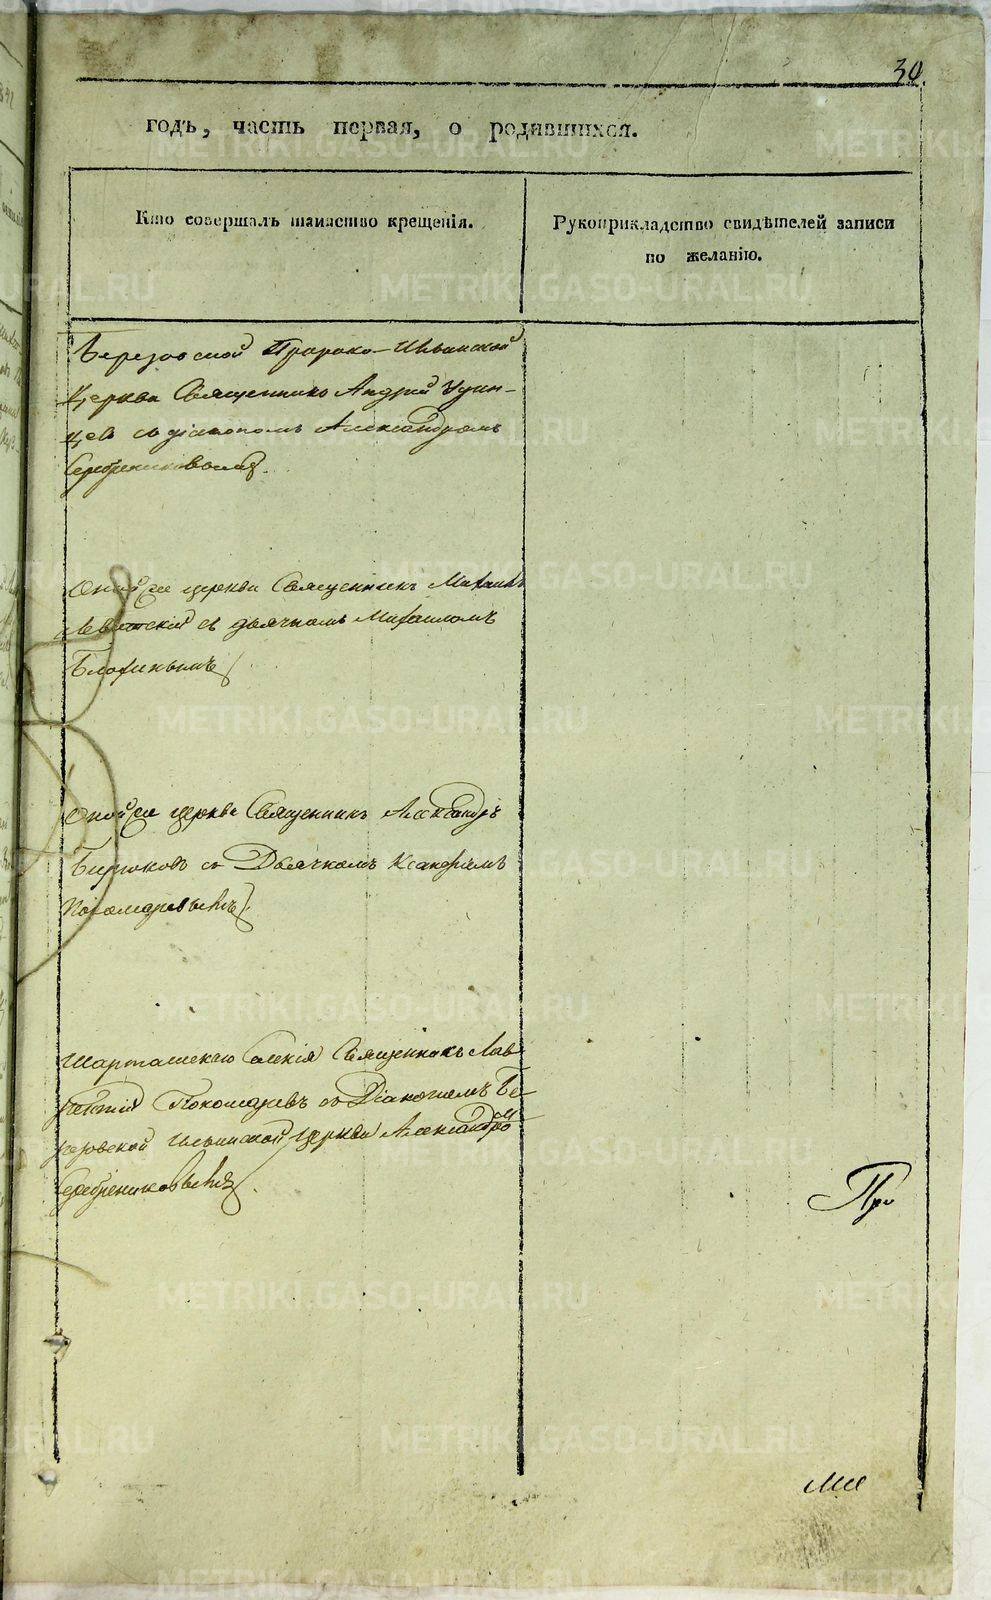 30.
годъ, часть первая, о родившихся.
Кто совершалъ таинство крещенія.
Рукоприкладство свидѣтелей записи
по желанію.
Березовской Пророко-Ильинской
Церкви Священникъ Андрей Удин-
цев со діакономъ Александромъ
Серебрениковымъ.
Оной же церкви Священникъ Михаилъ
съ дьячкомъ Михаиломъ
Оной же церкви Священникъ Александръ
Бирюковъ съ Дьячкомъ
Пономаревымъ.
Шарташскаго Священникъ Лав-
рентій Пономаревъ со Діакономъ Бе-
резовской Ильинской церкви Александромъ
Серебрениковымъ.
При
METRIKI.GASO-URAL.RU